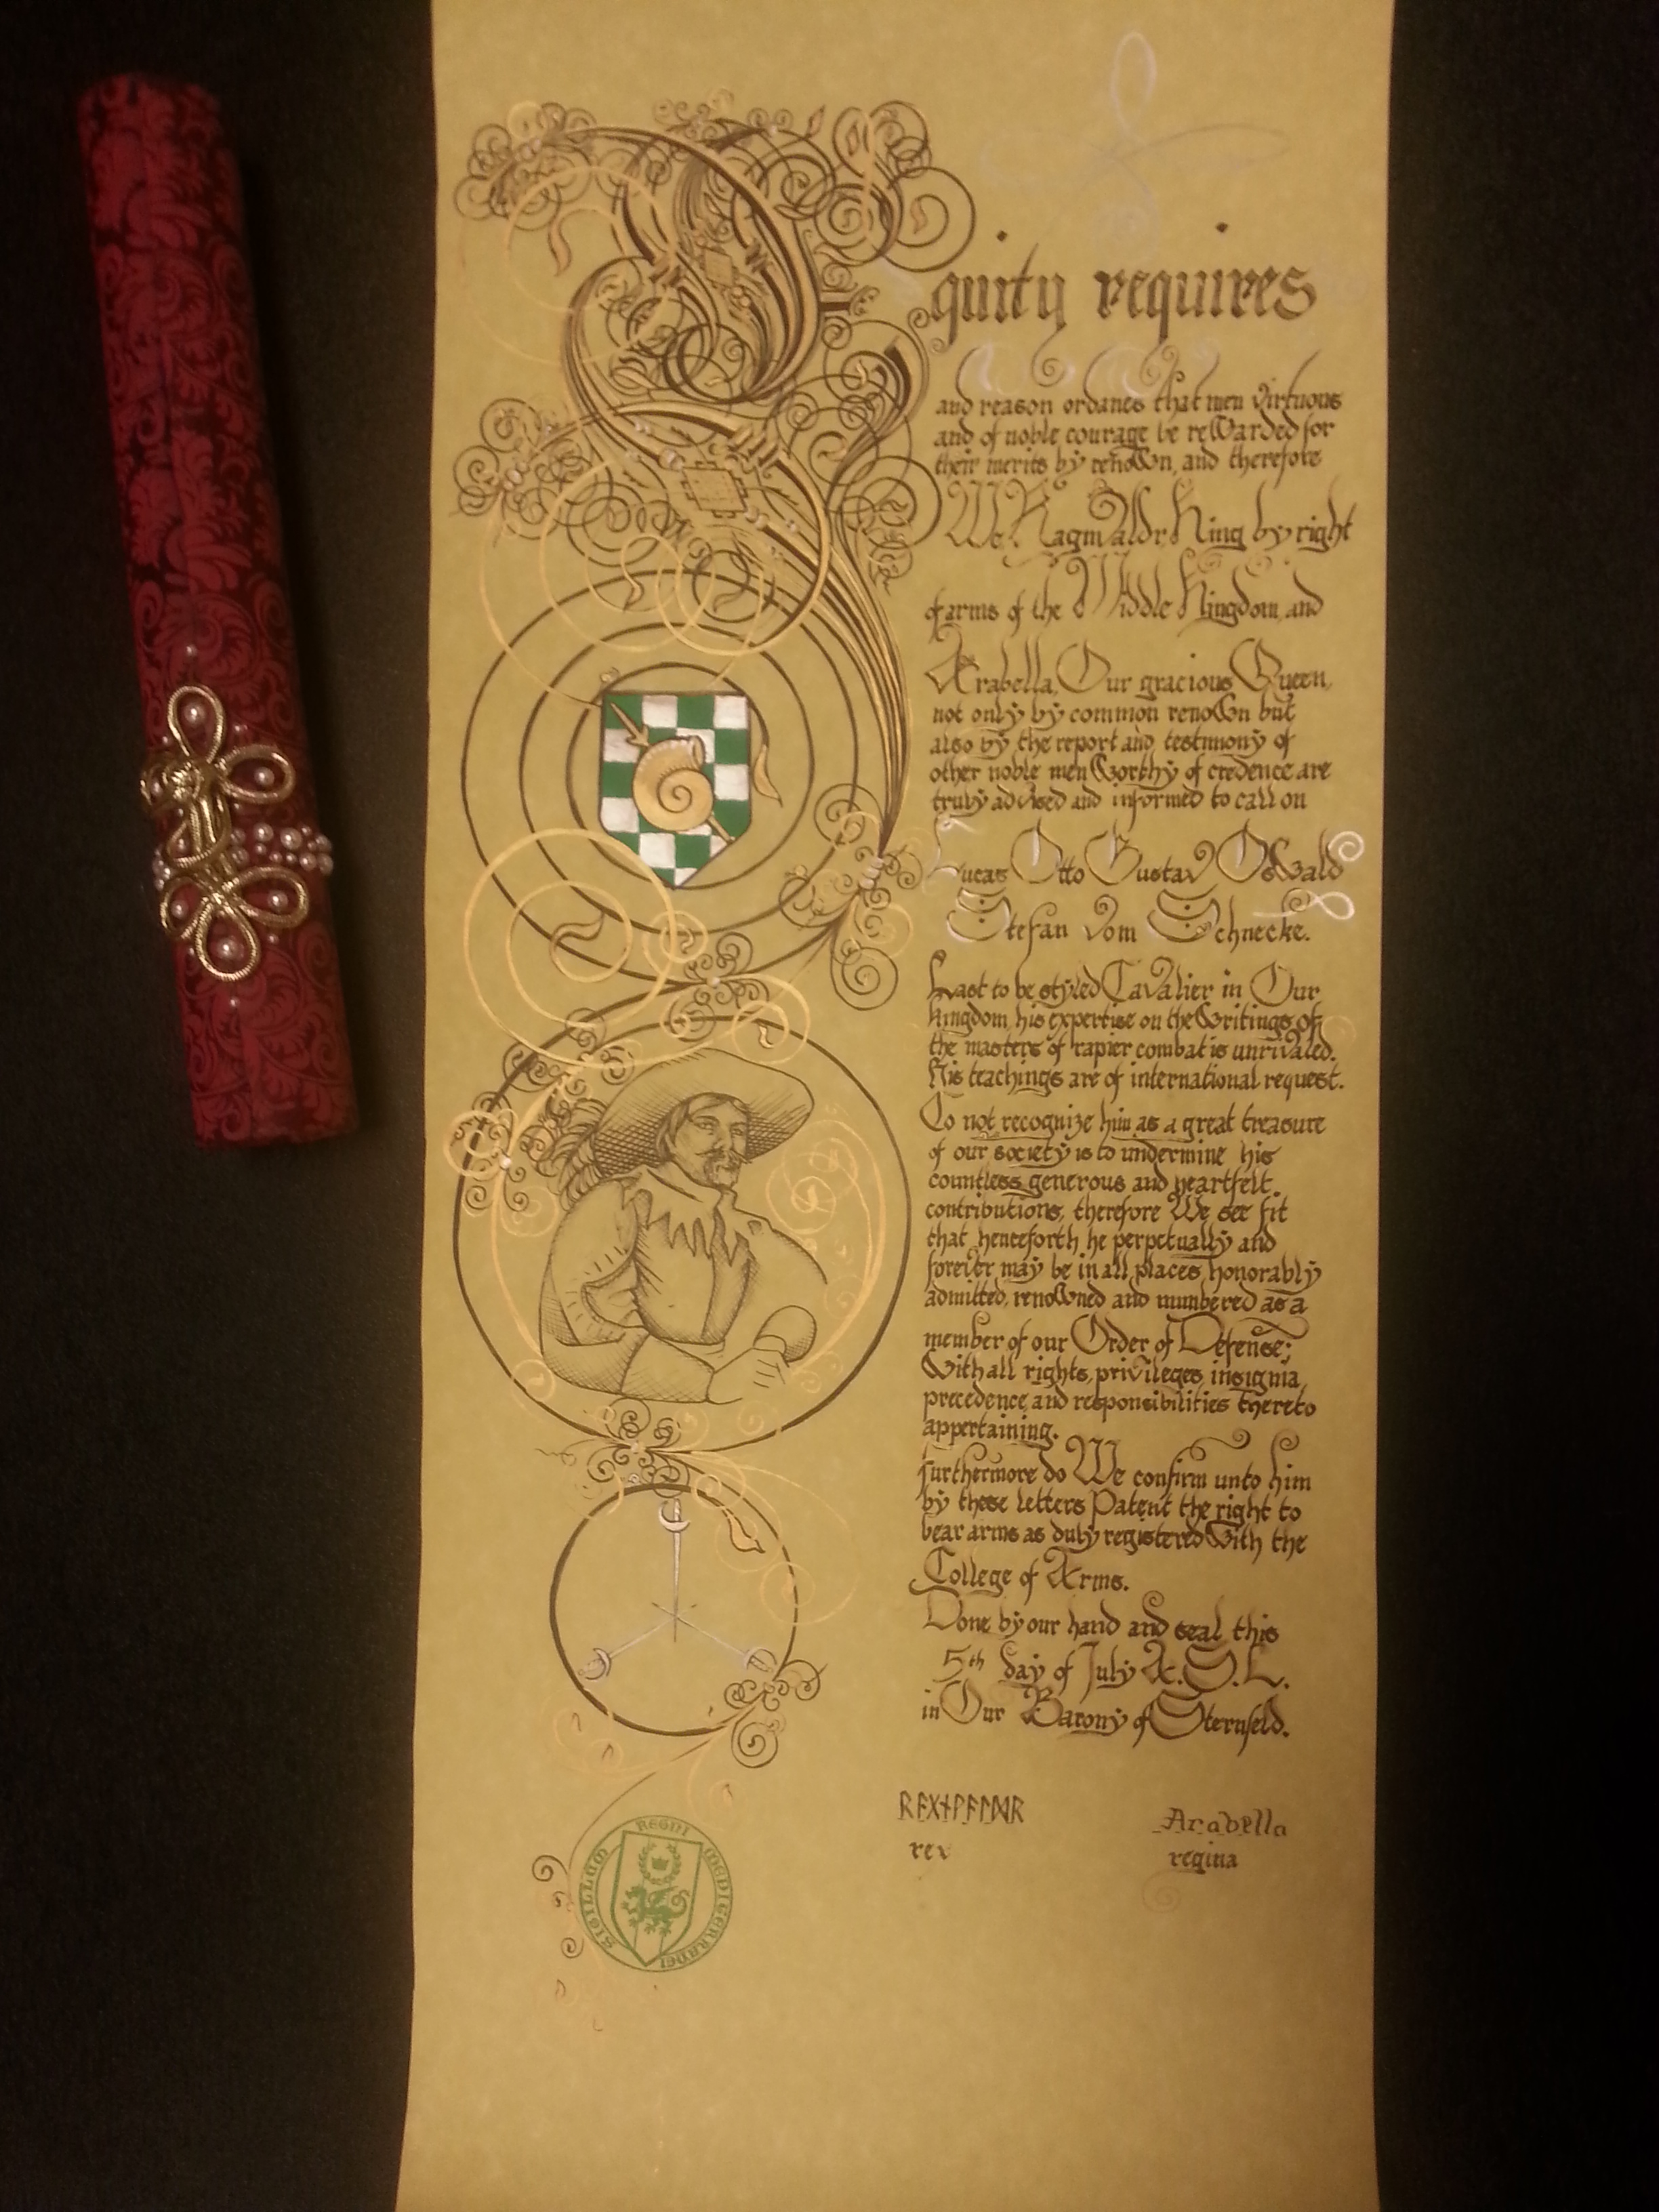 Equity requires
and reason ordanes that men virtuous
and of noble courage be rewarded for
their merits by renown, and therefore
We Ragnvaldr King by right
of arms of the Middle Kingdom, and
Arabella, Our gracious Queen,
not only by common renown but
also by the report and testimony of
other noble men worthy of credence are
truly advised and informed to call on
Lucas Otto Gustav Oswald
Stefan vom Schnecke.
Last to be styled Cavalier in Our
Kingdom, his expertise on the writings of
the masters of rapier combat is unrivaled.
His teachings are of international request.
To not recognize him as a great treasure
of our society is to undermine his
countless generous and heartfelt
contributions, therefore We see fit
that henceforth he perpetually and
forever may be in all places honorably
admitted, renowned and numbered as a
member of our Order of Defense;
With all rights, privileges, insignia,
precedence, and responsibilities thereto
appertaining.
Furthermore do We confirm unto him
by these letters Patent the right to
bear arms as duly registered with the
College of Arms.
Done by our hand and seal this
5th day of July A.S. L.
in Our Barony of Sternfeld.
ᚱᚨᚷᚾᚹᚨᛚᛞᚱ
rex
Arabella
regina
SIGILLUM REGNI MEDITERRANEI